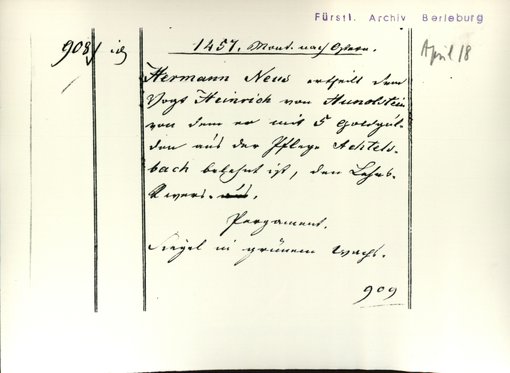 Fürstl. Archiv Berleburg
908 id 1457. Mont. nach Ostern. April 18
Hermann Neus ertheilt dem
Vogt Heinrich von Hunolstein
von dem er mit 5 Goldgul-
den aus der Pflege Achtels-
bach belehnt ist, den Lehns-
Revers aus.
Pergament.
Siegel in grünem Wachs.
909